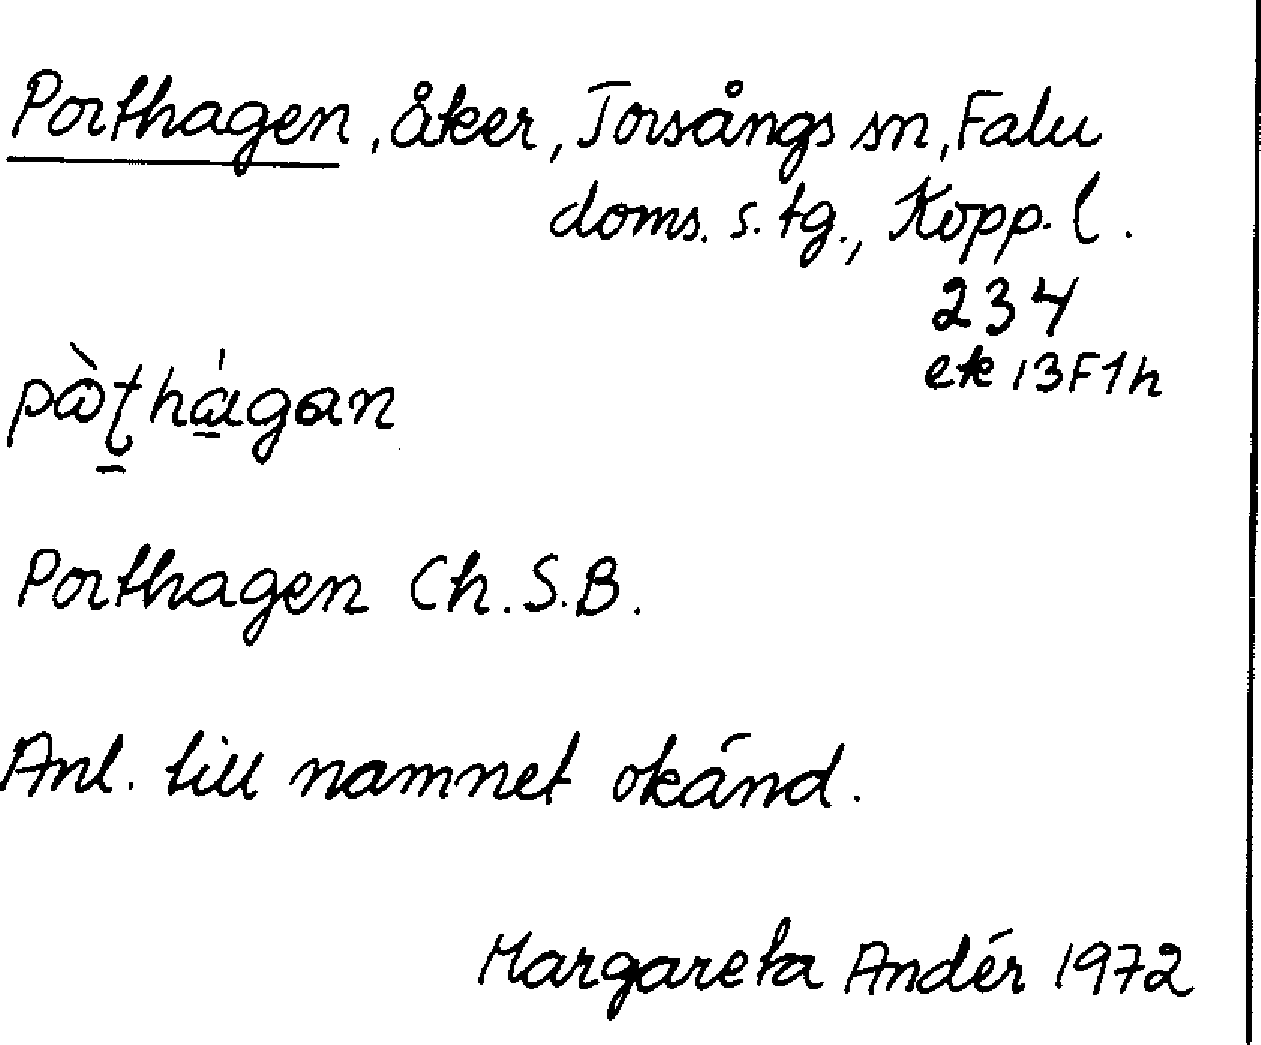 Porthagen, åker, Torsångs sn, Falu
doms. s. tg., Kopp. l.
234
ek 13F1h
Porthagen Ch. S. B.
Anl. till namnet okänd.
Margareta Andér 1972